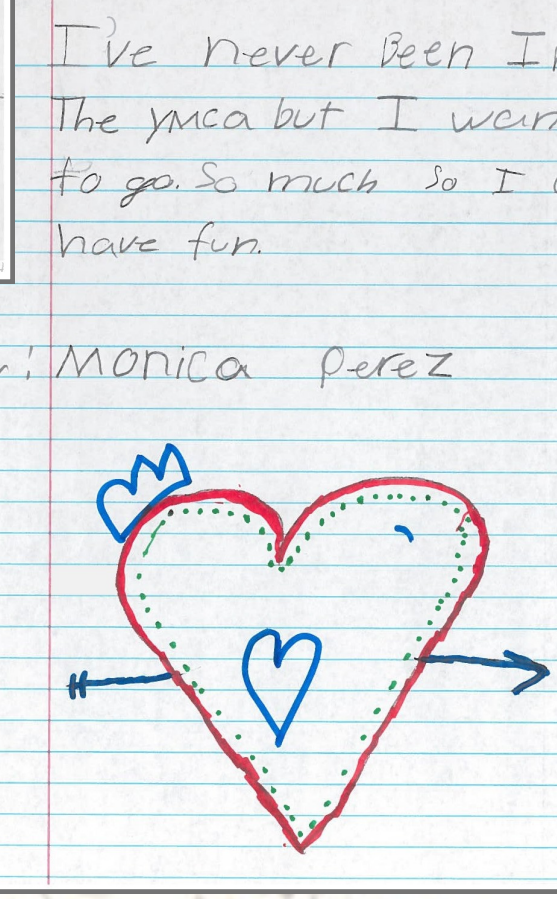 I've never Been I
The ymca but I wan
to go. So much so I
have fun.
: Monica Perez